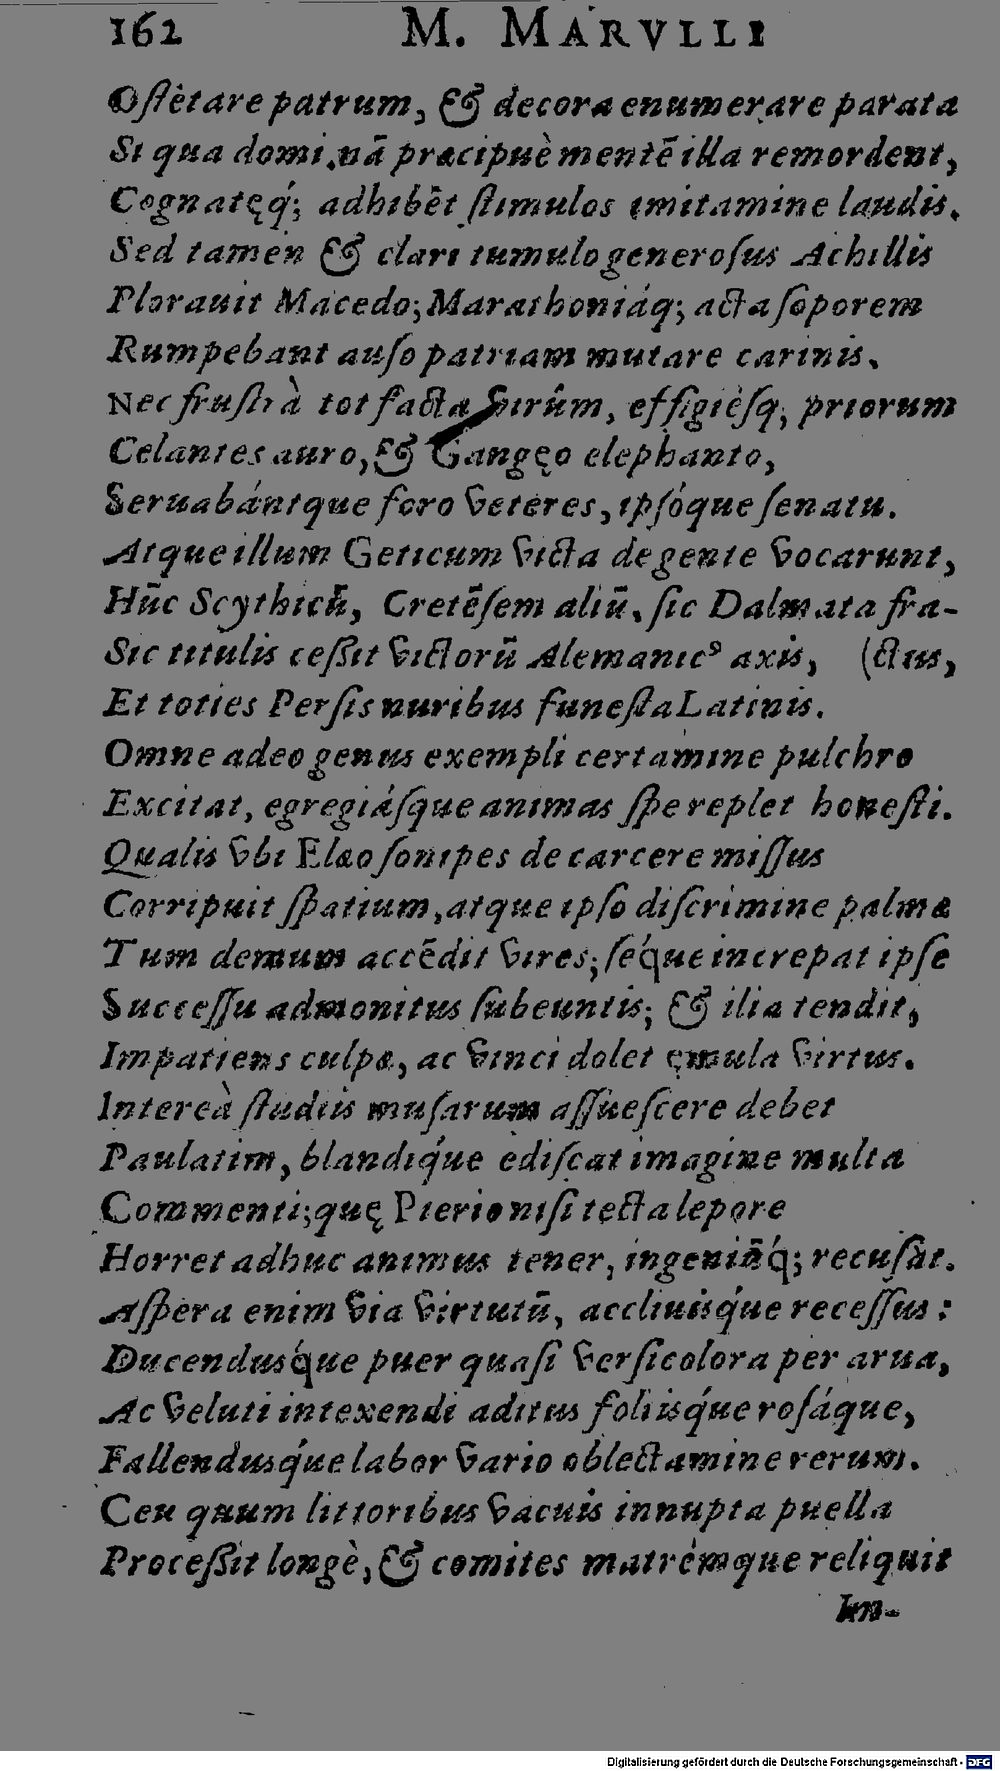 162 M. MARVLLI
Oſtẽtare patrum, & decora enumerare parata
Si qua domi, nã præcipuè mentẽ illa remordent,
Cognatęq́; adhibẽt ſtimulos imitamine laudis.
Sed tamen & clari tumulo generoſus Achillis
Plorauit Macedo; Marathoniáq; acta ſoporem
Rumpebant auſo patriam mutare carinis.
Nec fruſtrà tot facta virûm, effigiéſq; priorum
Celantes auro, & Gangęo elephanto,
Seruabántque foro veteres, ipſóque ſenatu.
Atque illum Geticum victa de gente vocarunt,
Hũc Scythicũ, Cretẽſem aliũ, ſic Dalmata fra-
Sic titulis ceſſit victorũ Alemanicꝰ axis, (ctus,
Et toties Perſis nuribus funeſta Latinis.
Omne adeo genus exempli certamine pulchro
Excitat, egregiáſque animas ſpe replet honeſti.
Qualis vbi Elæo ſonipes de carcere miſſus
Corripuit ſpatium, atque ipſo diſcrimine palmæ
Tum demum accẽdit vires; ſéque increpat ipſe
Succeſſu admonitus ſubeuntis; & ilia tendit,
Impatiens culpæ, ac vinci dolet ęmula virtus.
Intereà ſtudiis muſarum aſſueſcere debet
Paulatim, blandíque ediſcat imagine multa
Commenti; quę Pierio niſi tecta lepore
Horret adhuc animus tener, ingeniũq́; recuſat.
Aſpera enim via virtutũ, accliuisq́ue receſſus:
Ducendusq́ue puer quaſi verſicolora per arua,
Ac veluti intexendi aditus foliisq́ue roſáque,
Fallendusq́ue labor vario oblectamine rerum.
Ceu quum littoribus vacuis innupta puella
Proceſſit longè, & comites matrémque reliquit
Im-
Digitalisierung gefördert durch die Deutsche Forschungsgemeinschaft - DFG